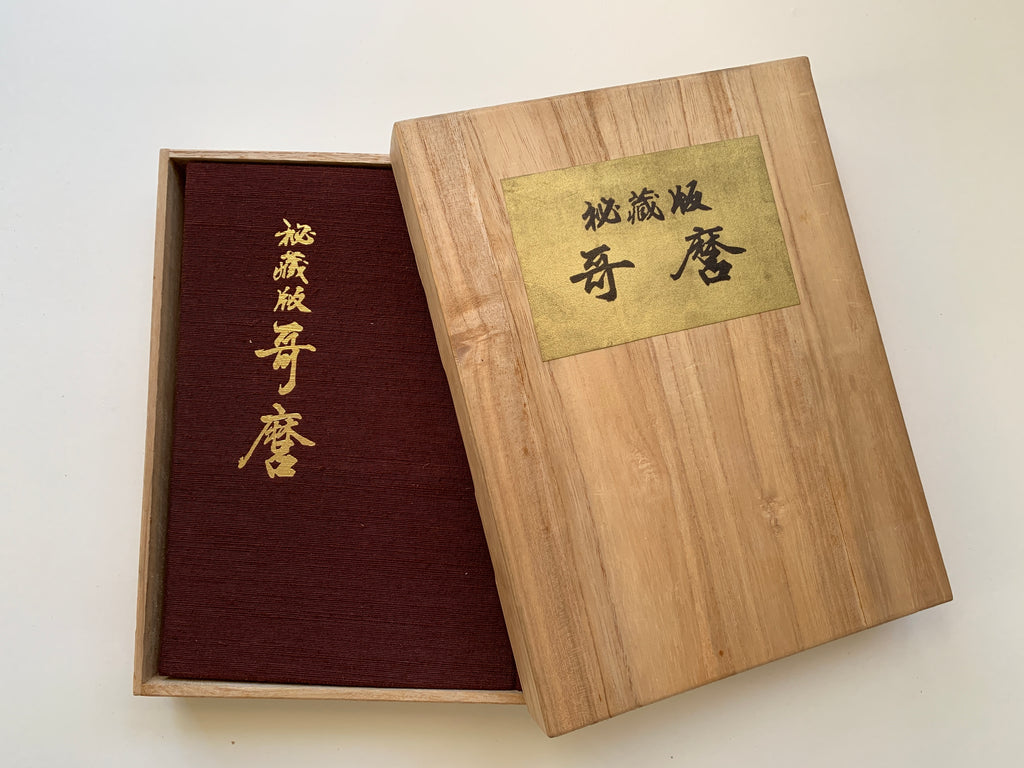 秘藏版
哥麿
秘藏版
哥麿